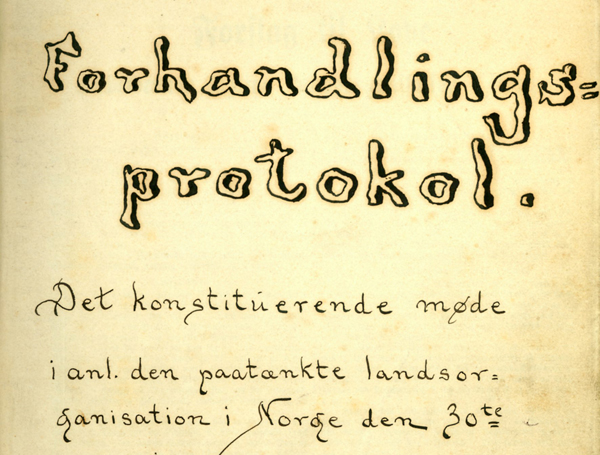 Forhandlings=
protokol.
Det konstitúerende møde
i anl. den paatænkte landsor=
ganisation i Norge den 30te